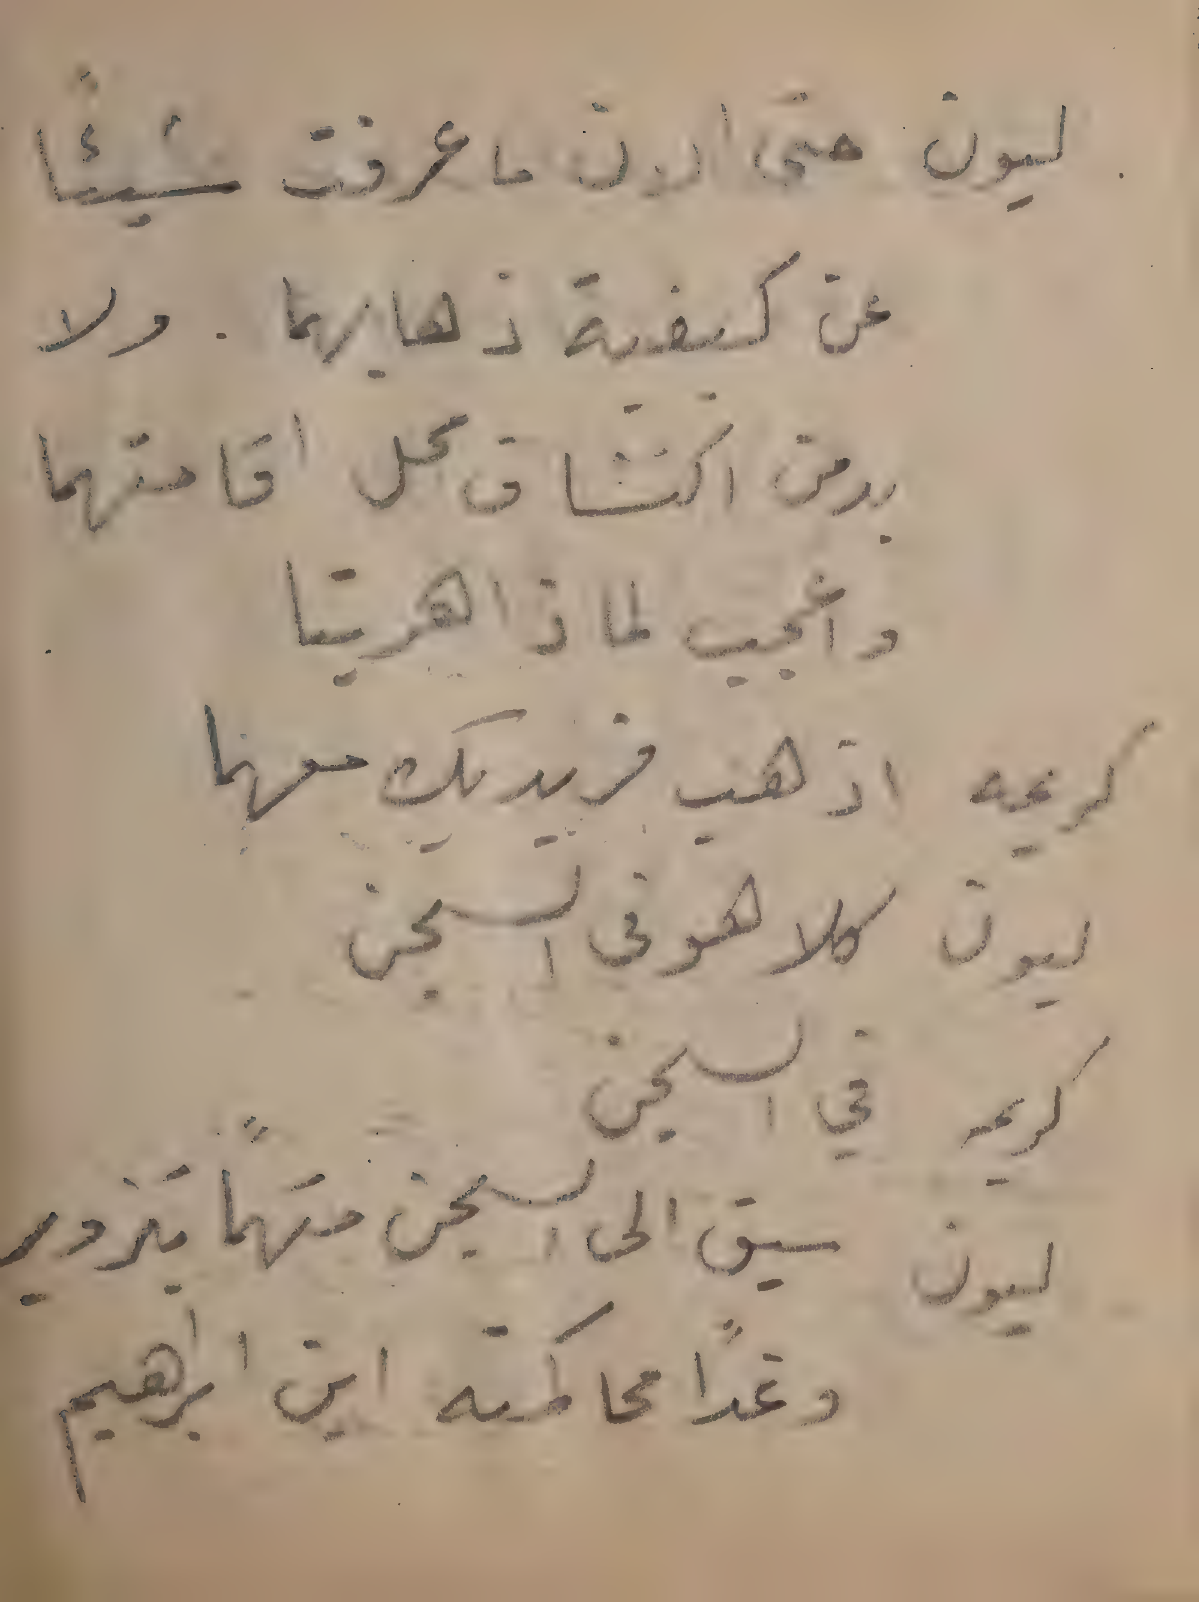 ليون حتى الان ما عرفت شيئاً
عن كيفية ذهابهما . ولا
بد من اكتشاف محل اقامتهما
واعجب لماذا هربتا
كريمه اذهب فريد بك معهما
ليون كلا هو في السجن
كريمه في السجن
ليون سيق الى السجن متهماً بتزوير
وغداً محاكمته اين ابراهيم